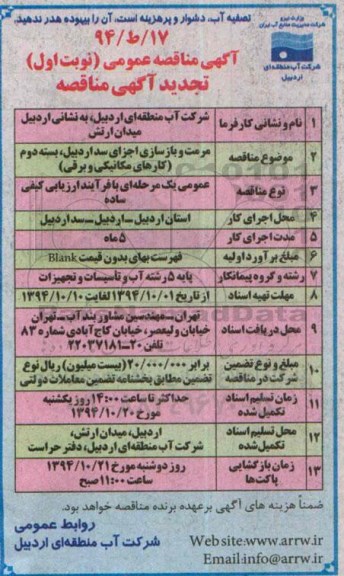 تصفیه آب، دشوار و پرهزینه است، آن را بیهوده هدر ندهید.
وزارت نیرو
شرکت مدیریت منابع آب ایران
شرکت آب منطقه‌ای
اردبیل
۱۷/ط/۹۴
آگهی مناقصه عمومی (نوبت اول)
تجدید آگهی مناقصه
۱ نام و نشانی کارفرما شرکت آب منطقه‌ای اردبیل، به نشانی اردبیل
میدان ارتش
۲ موضوع مناقصه مرمت و بازسازی اجزای سد اردبیل، بسته دوم
(کارهای مکانیکی و برقی)
۳ نوع مناقصه عمومی یک مرحله‌ای با فرآیند ارزیابی کیفی
ساده
۴ محل اجرای کار استان اردبیل ـ اردبیل ـ سد اردبیل
۵ مدت اجرای کار ۵ ماه
۶ مبلغ برآورد اولیه فهرست بهای بدون قیمت Blank
۷ رشته و گروه پیمانکار پایه ۵ رشته آب و تاسیسات و تجهیزات
۸ مهلت تهیه اسناد از تاریخ ۱۳۹۴/۱۰/۰۱ لغایت ۱۳۹۴/۱۰/۱۰
۹ محل دریافت اسناد تهران ـ مهندسین مشاور بندآب ـ تهران
خیابان ولیعصر، خیابان کاج آبادی شماره ۸۳
تلفن ۲۰ـ۲۲۰۳۷۱۸۱
۱۰ مبلغ و نوع تضمین
شرکت در مناقصه برابر ۲۰/۰۰۰/۰۰۰ (بیست میلیون) ریال نوع
تضمین مطابق بخشنامه تضمین معاملات دولتی
۱۱ زمان تسلیم اسناد
تکمیل شده حداکثر تا ساعت ۱۴:۰۰ روز یکشنبه
مورخ ۱۳۹۴/۱۰/۲۰
۱۲ محل تسلیم اسناد
تکمیل شده اردبیل، میدان ارتش،
شرکت آب منطقه‌ای اردبیل، دفتر حراست
۱۳ زمان بازگشایی
پاکت‌ها روز دوشنبه مورخ ۱۳۹۴/۱۰/۲۱
ساعت ۱۱:۰۰ صبح
ضمناً هزینه های آگهی برعهده برنده مناقصه خواهد بود.
روابط عمومی
شرکت آب منطقه‌ای اردبیل
Web site:www.arrw.ir
Email:info@arrw.ir